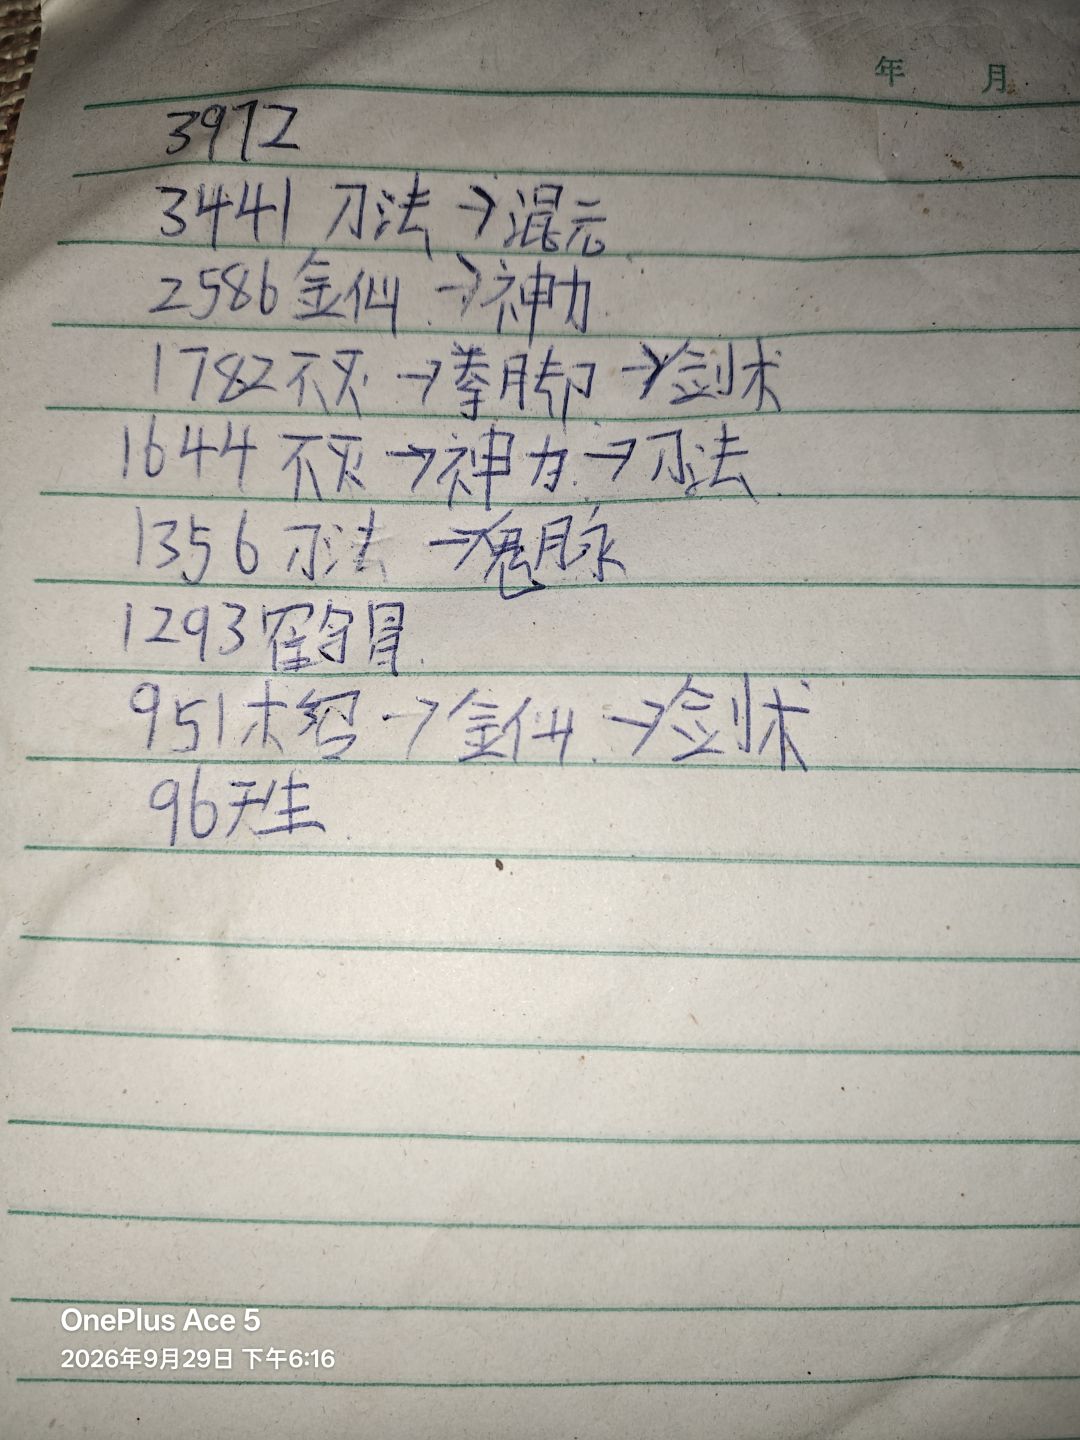 年 月
3972
3441 刀法→混元
2586金仙→神力
1782不灭→拳脚→剑术
1644不灭→神力→刀法
1356刀法→鬼脉
1293
951木→金仙→剑术
96天生
OnePlus Ace 5
2026年9月29日 下午6:16